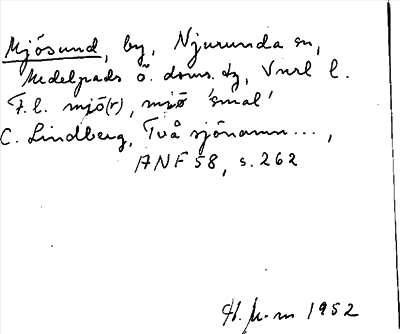 Mjösund, by, Njurunda sn,
Medelpads ö. doms. tg, Vnrl l.
F.l. mjö(r), mjö 'smal'
C. Lindberg, Två sjönamn...,
ANF 58, s. 262
1952